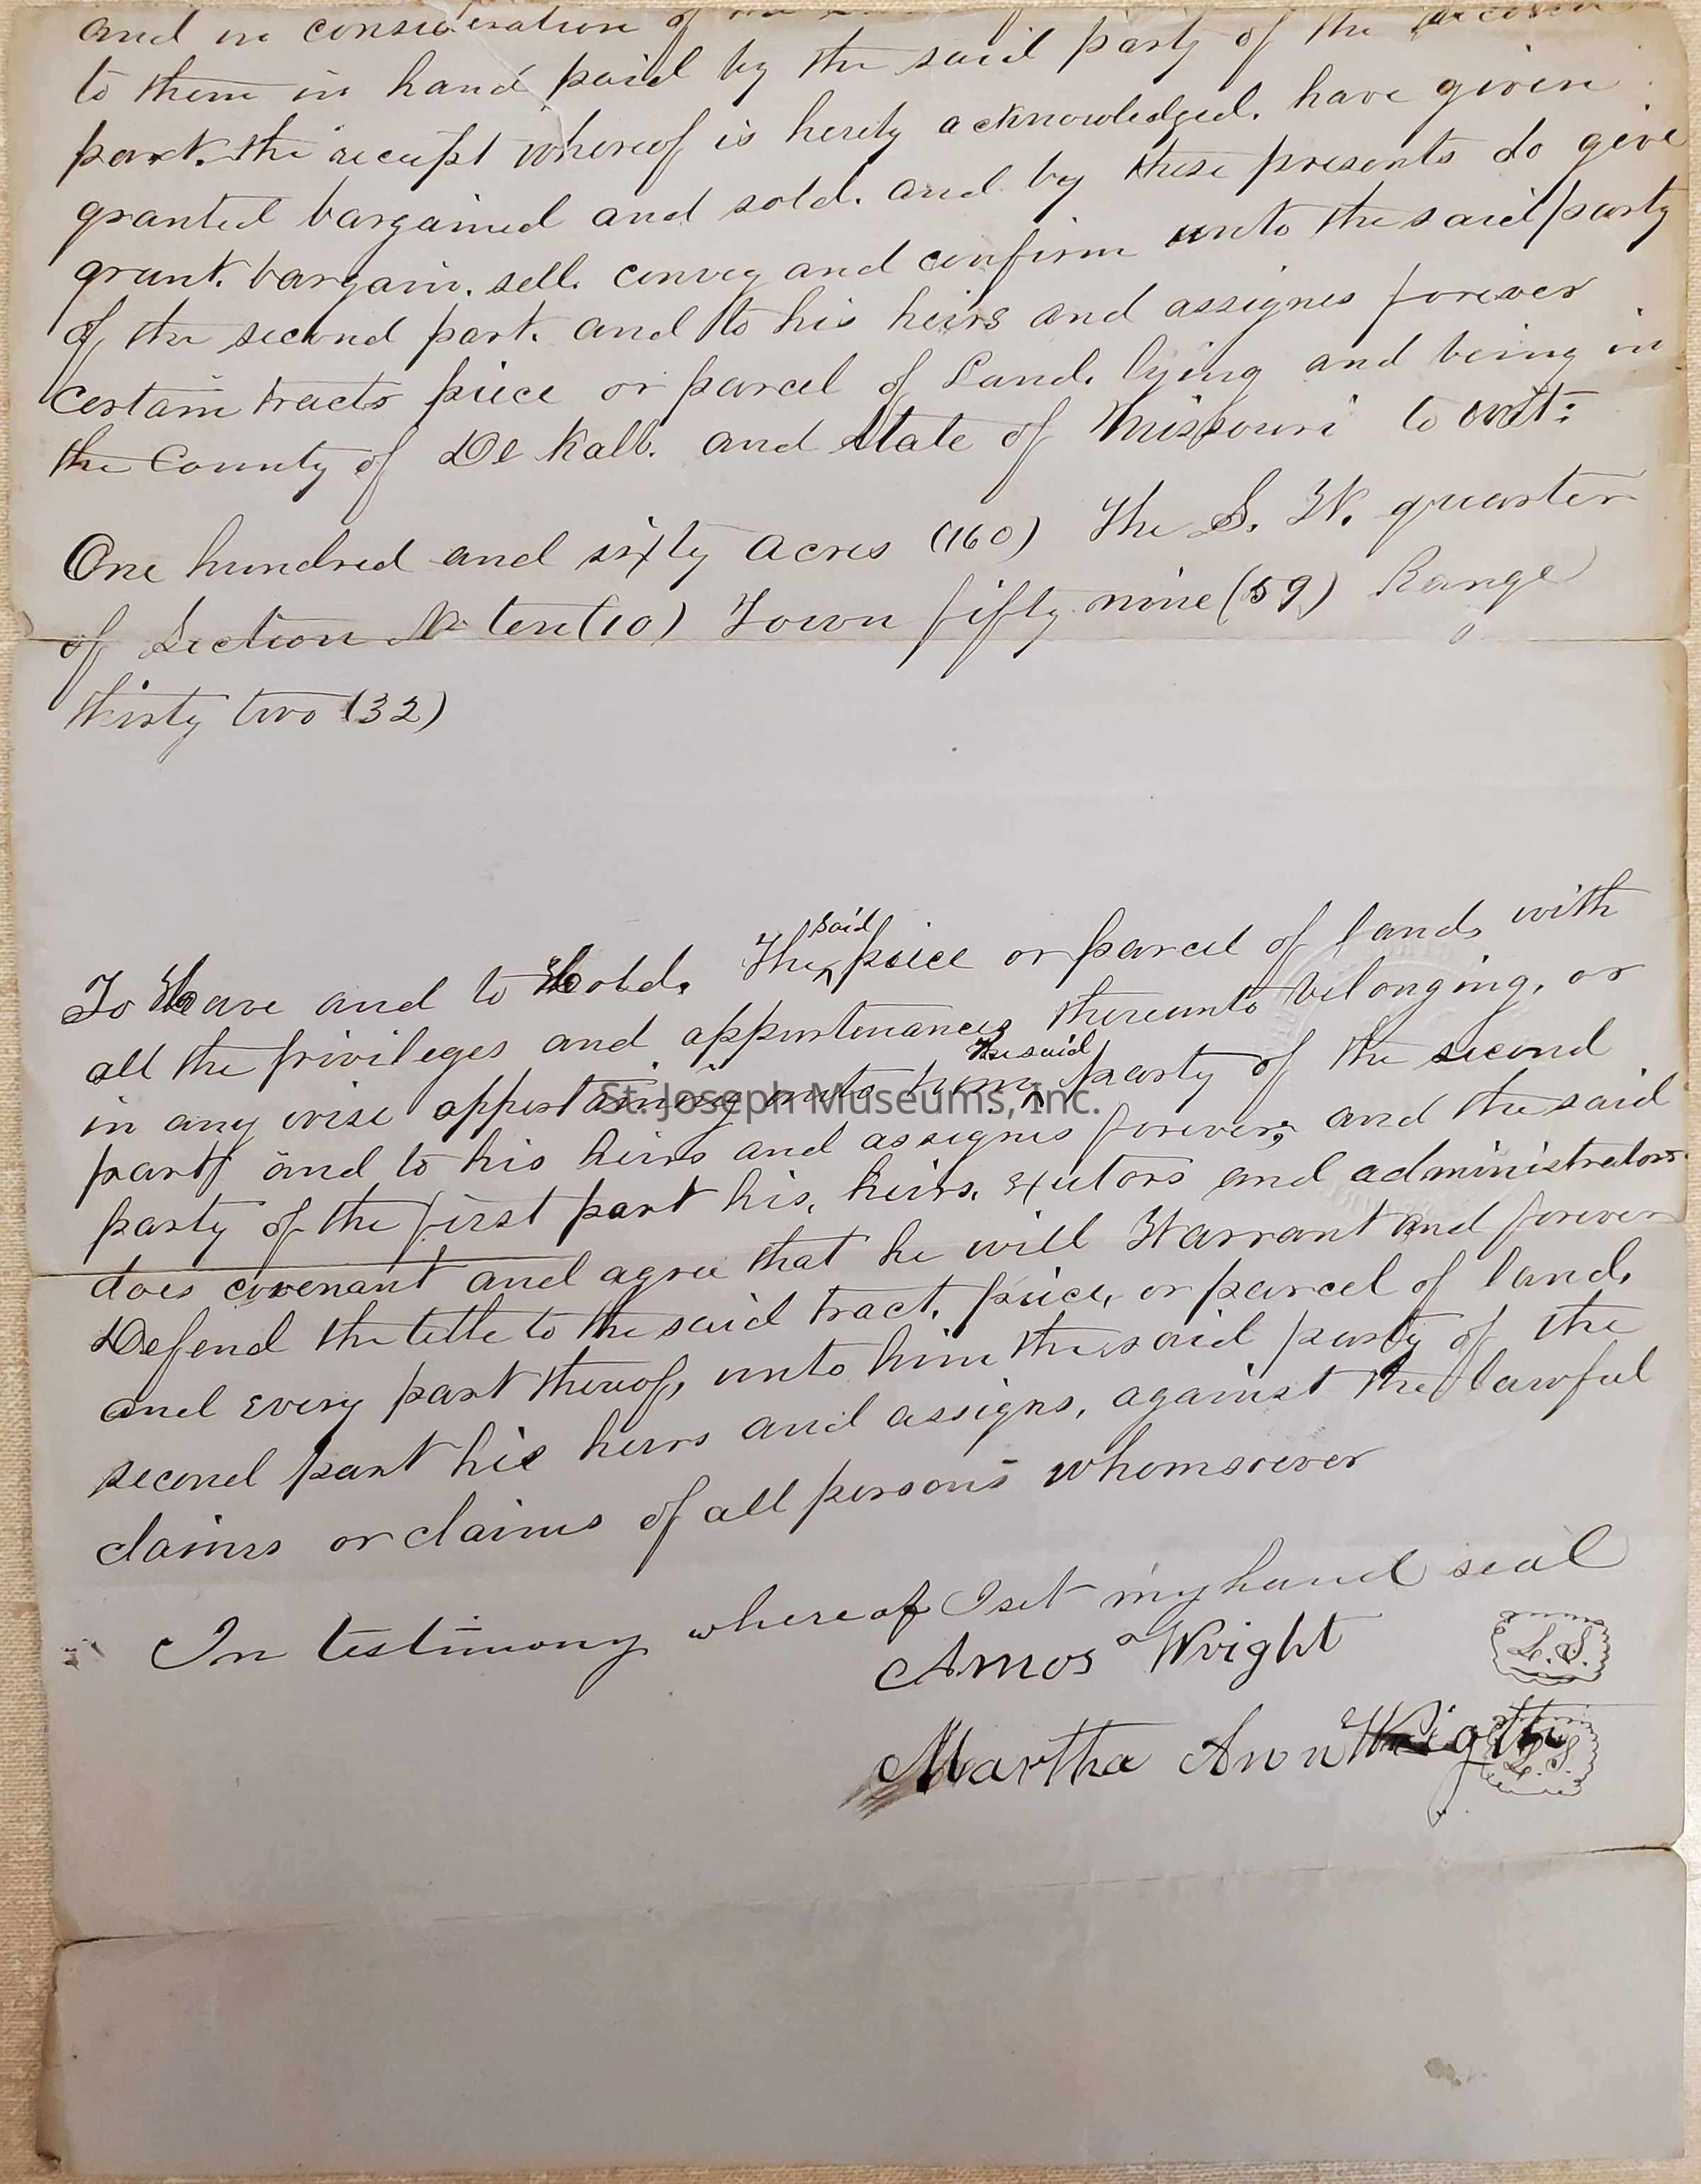 and in consideration of the
to them in hand paid by the said party of the second
part. the receipt whereof is herely acknowledged. have given
granted bargained and sold. and by these presents do give
grant. bargain. sell. convey and confirm unto the said party
of the second part. and to his heirs and assignes forever
certain tracts piece or parcel of Land. lying and being in
the County of De Kalb. and State of Missouri to wit:
One hundred and sixty acres (160) The S. W. quarter
of Section ten (10) Town fifty nine (59) Range
thirty two (32)
said
To Have and to Hold. The ‸ piece or parcel of land, with
all the privileges and appurtenances thereunto belonging, or
the said
in any wise appertaining unto him, ‸ party of the second
part and to his heirs and assignes forever; and the said
party of the first part his, heirs, exutors and administrators
does covenant and agree that he will Warrant and forever
Defend the title to the said tract, piece, or parcel of land,
and every part thereof, unto him the said party of the
second part his heirs and assigns, against the lawful
claims or claims of all persons whomsoever
In testimony whereof I set my hand seal
Amos Wright L.S.
Martha Ann Wright L.S.
St. Joseph Museums, Inc.